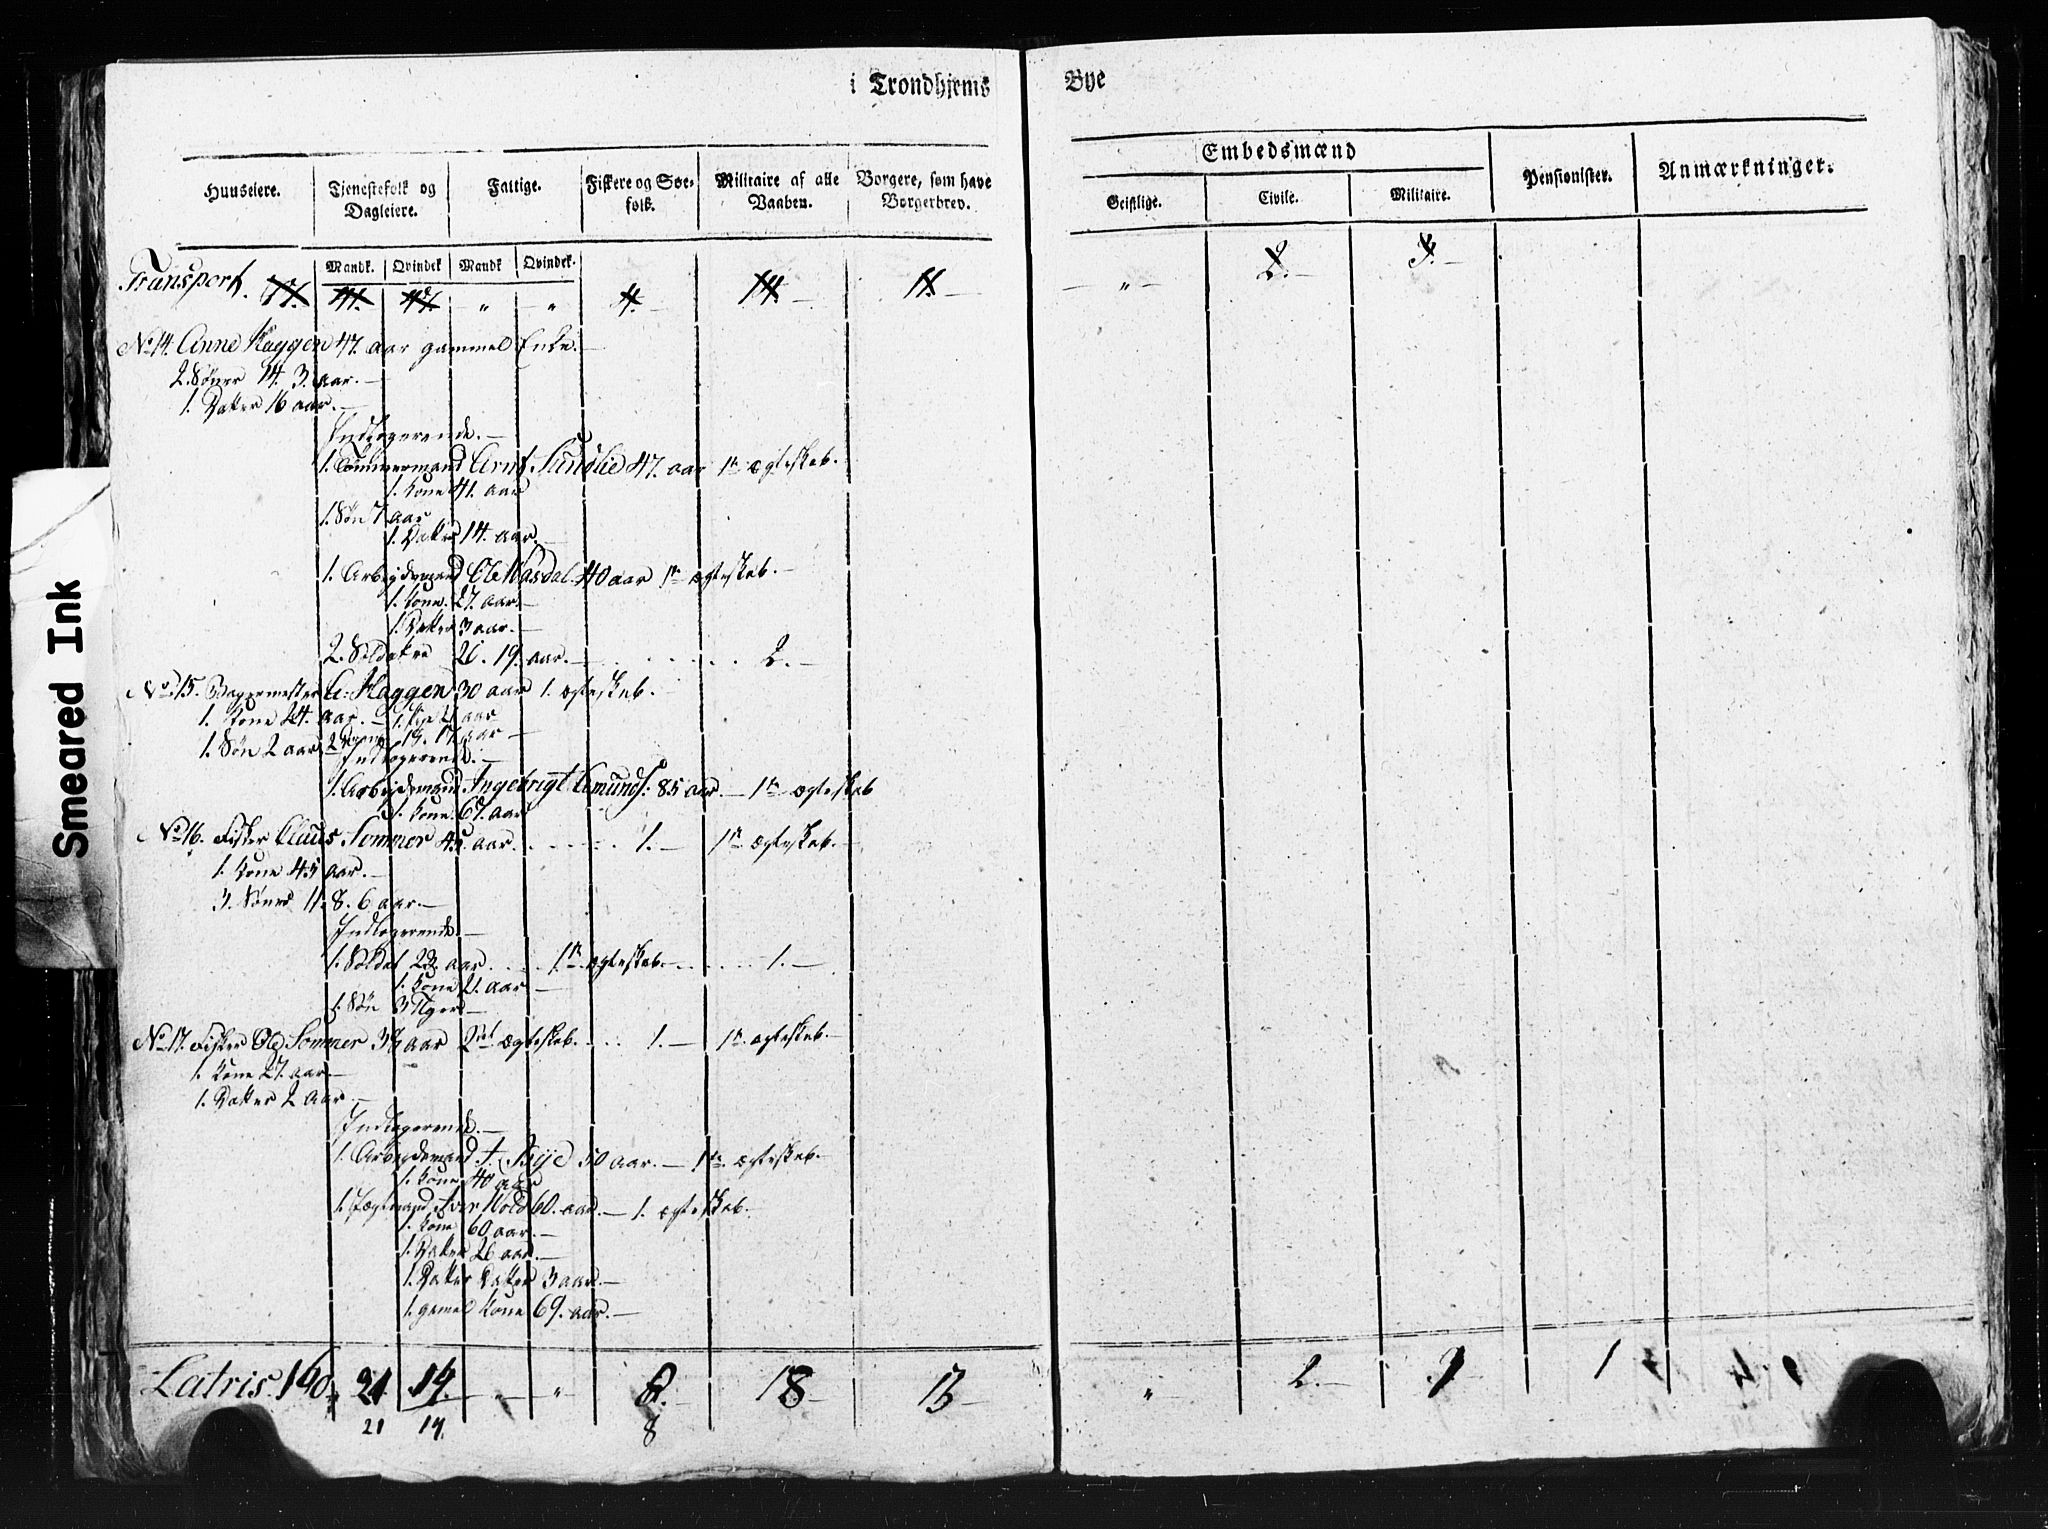 i Trondhjems Bye
Huuseiere. Tjenestefolk og Dagleiere. Fattige. Fiskere og Søefolk. Militaire af alle Vaaben. Borgere, som have Borgerbrev.
Embedsmænd
Geistlige. Civile. Militaire. Pensionister. Anmærkninger.
Mandk. Qvindek Mandk Qvindek.
Transport. " " 4. 14. 11. " 2. 3.
No 14. Anne Kaggen 47. aar gammel Enke.
2. Sønner 14. 3. aar.
1. Datter 16 aar.
Indlogerende.
1. Tømmermand Arnt Sundlie 47. aar 1te ægteskab.
1. Kone 41. aar
1. Søn 7 aar
1. Datter 14. aar.
1. Arbejdsmand Ole Aasdal 40 aar 1te ægteskab.
1. Kone. 27. aar.
1. Datter 3 aar.
2. Soldater 26. 19. aar. 2.
No 15. Bagermester C. Haggen 30 aar 1. ægteskab.
1. Kone 24. aar. 1. Pige 21 aar
1. Søn 2 aar 2 19. 17. aar
Indlogerende.
1. Arbejdsmand Ingebrigt Amunds: 85 aar. 1te ægteskab
1. Kone. 67. aar
No 16. Fisker Claus Sommer 45. aar. 1. 1te ægteskab.
1. Kone 45 aar.
3. Sønner 11. 8. 6 aar.
Indlogerende.
1. Soldat 22. aar. 1te ægteskab. 1.
1. Kone 21. aar
1. Søn 3 Uger
No 17. Fisker Ole Sommer 36 aar 2det ægteskab. 1. 1te ægteskab.
1. Kone 27. aar.
1. Datter 2 aar.
Indlogerende.
1. Arbejdsmand J. Bye 50 aar. 1te ægteskab.
1. Kone 40 aar
1. Iver Hold 60. aar. 1. ægteskab.
1. Kone 60 aar.
1. Datter 26 aar.
1. Datter Datter 3 aar.
1. gamel Kone 69. aar.
Latris. 160. 21 14. " " 8. 18 13 " 2. 3 1
21 14. 8
Smeared Ink